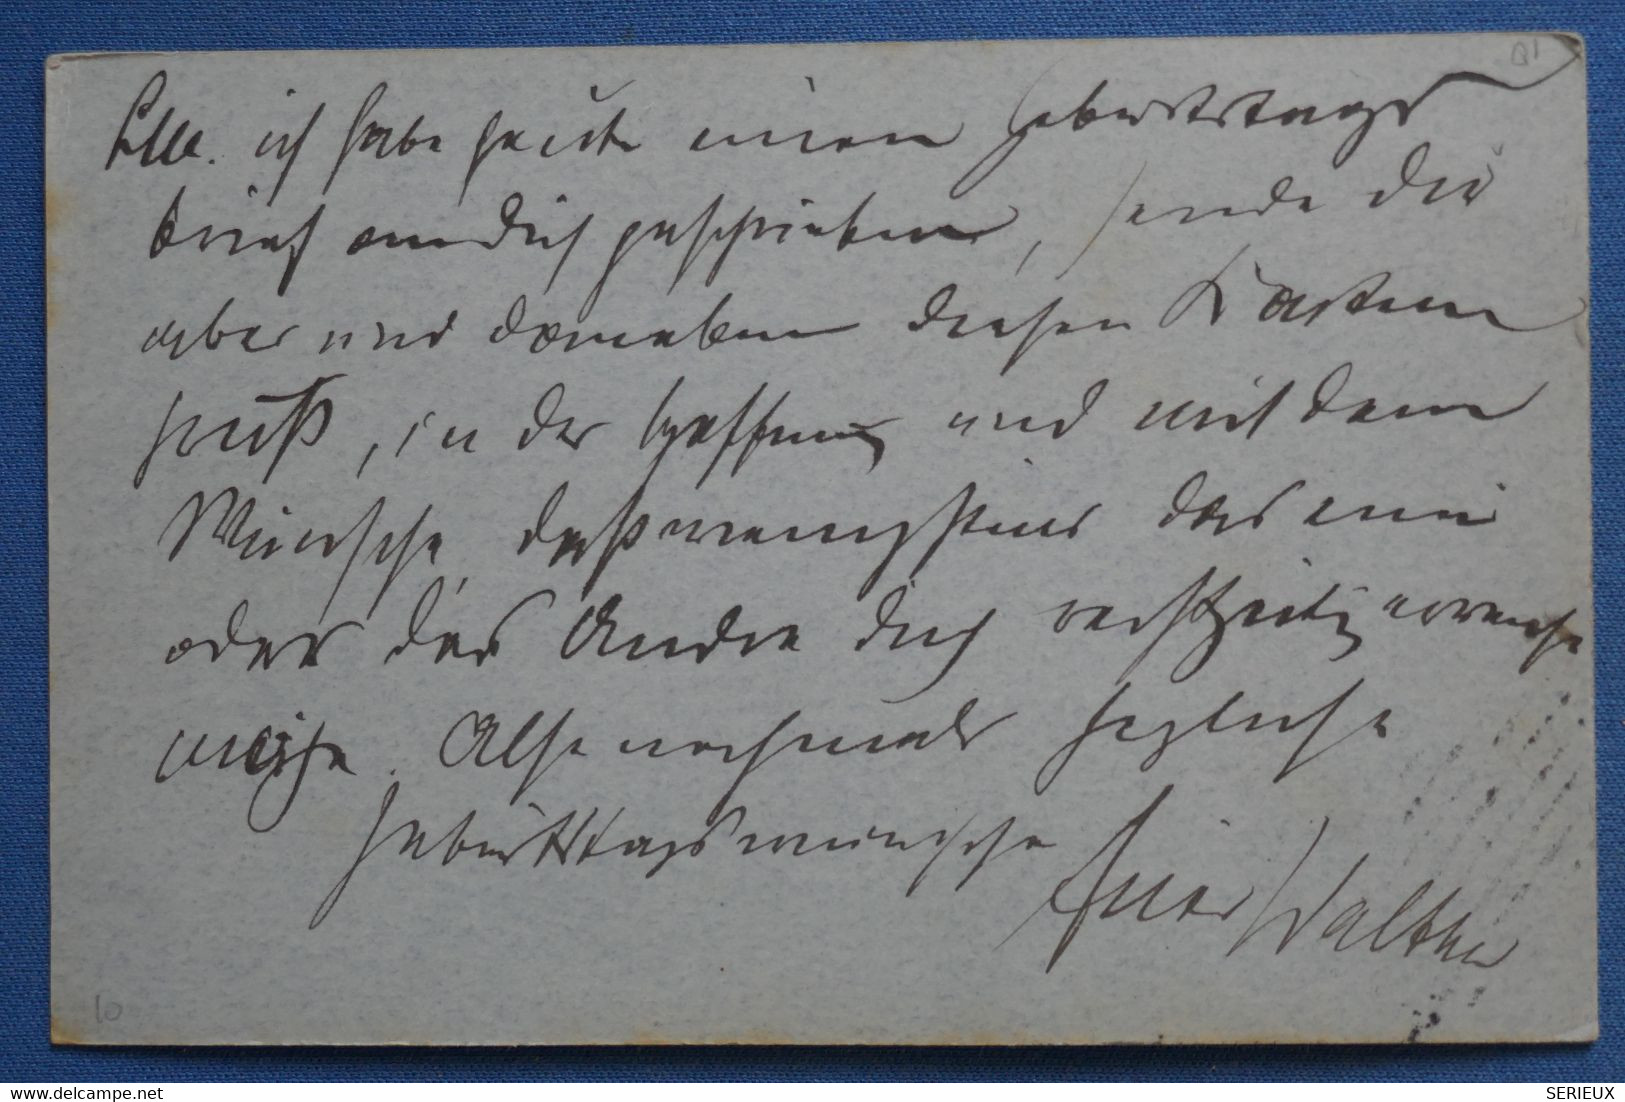 Q1
ich habe heute einen Geburtstags
brief an Dich geschrieben, sende Dir
aber und daneben diesen Karten
gruß, in der Hoffnung und mit dem
Wunsche, daß wenigstens das eine
oder das Andre Dich rechtzeitig erreiche
möge. Also nochmals herzliche
Geburtstagswünsche
Euer Walther
10
SERIEUX